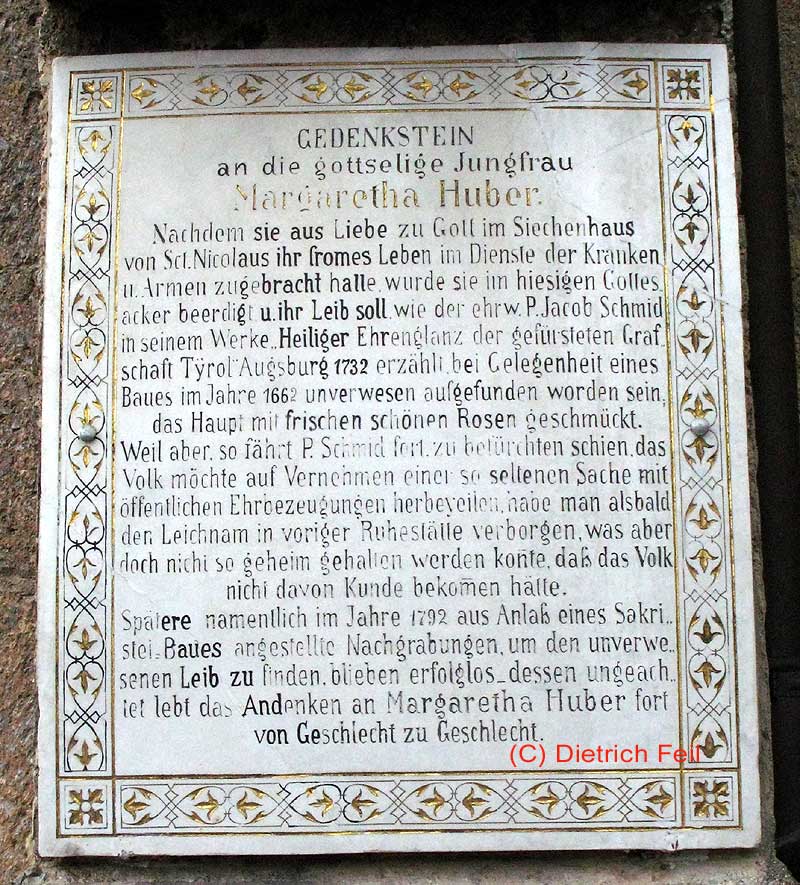 GEDENKSTEIN
an die gottselige Jungfrau
Margaretha Huber.
Nachdem sie aus Liebe zu Gott im Siechenhaus
von Sct. Nicolaus ihr fromes Leben im Dienste der Kranken
u. Armen zugebracht hatte, wurde sie im hiesigen Gottes
acker beerdigt u. ihr Leib soll, wie der ehrw. P. Jacob Schmid
in seinem Werke „Heiliger Ehrenglanz der gefürsteten Graf
schaft Tÿrol" Augsburg 1732 erzählt, bei Gelegenheit eines
Baues im Jahre 1662 unverwesen aufgefunden worden sein,
das Haupt mit frischen schönen Rosen geschmückt.
Weil aber, so fährt P. Schmid fort, zu befürchten schien, das
Volk möchte auf Vernehmen einer so seltenen Sache mit
öffentlichen Ehrbezeugungen herbeyeilen, habe man alsbald
den Leichnam in voriger Ruhestätte verborgen, was aber
doch nicht so geheim gehalten werden konte, daß das Volk
nicht davon Kunde bekomen hätte.
Spätere namentlich im Jahre 1792 aus Anlaß eines Sakri„
stei„Baues angestellte Nachgrabungen, um den unverwe„
senen Leib zu finden, blieben erfolglos_ dessen ungeach„
tet lebt das Andenken an Margaretha Huber fort
von Geschlecht zu Geschlecht.
(C) Dietrich Feil